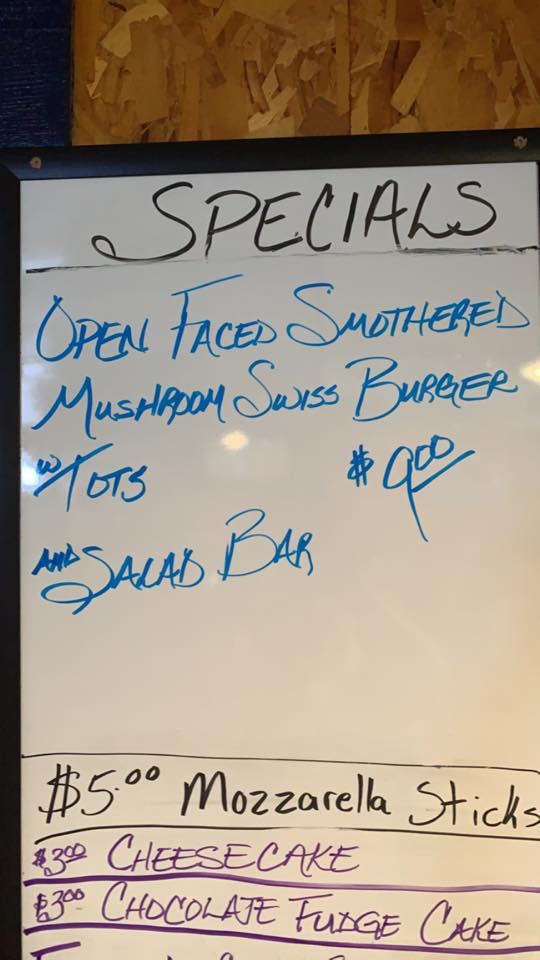 SPECIALS
OPEN FACED SMOTHERED
MUSHROOM SWISS BURGER
W/ TOTS $9.00
AND SALAD BAR
$5.00 Mozzarella Sticks
$3.00 CHEESECAKE
$3.00 CHOCOLATE FUDGE CAKE